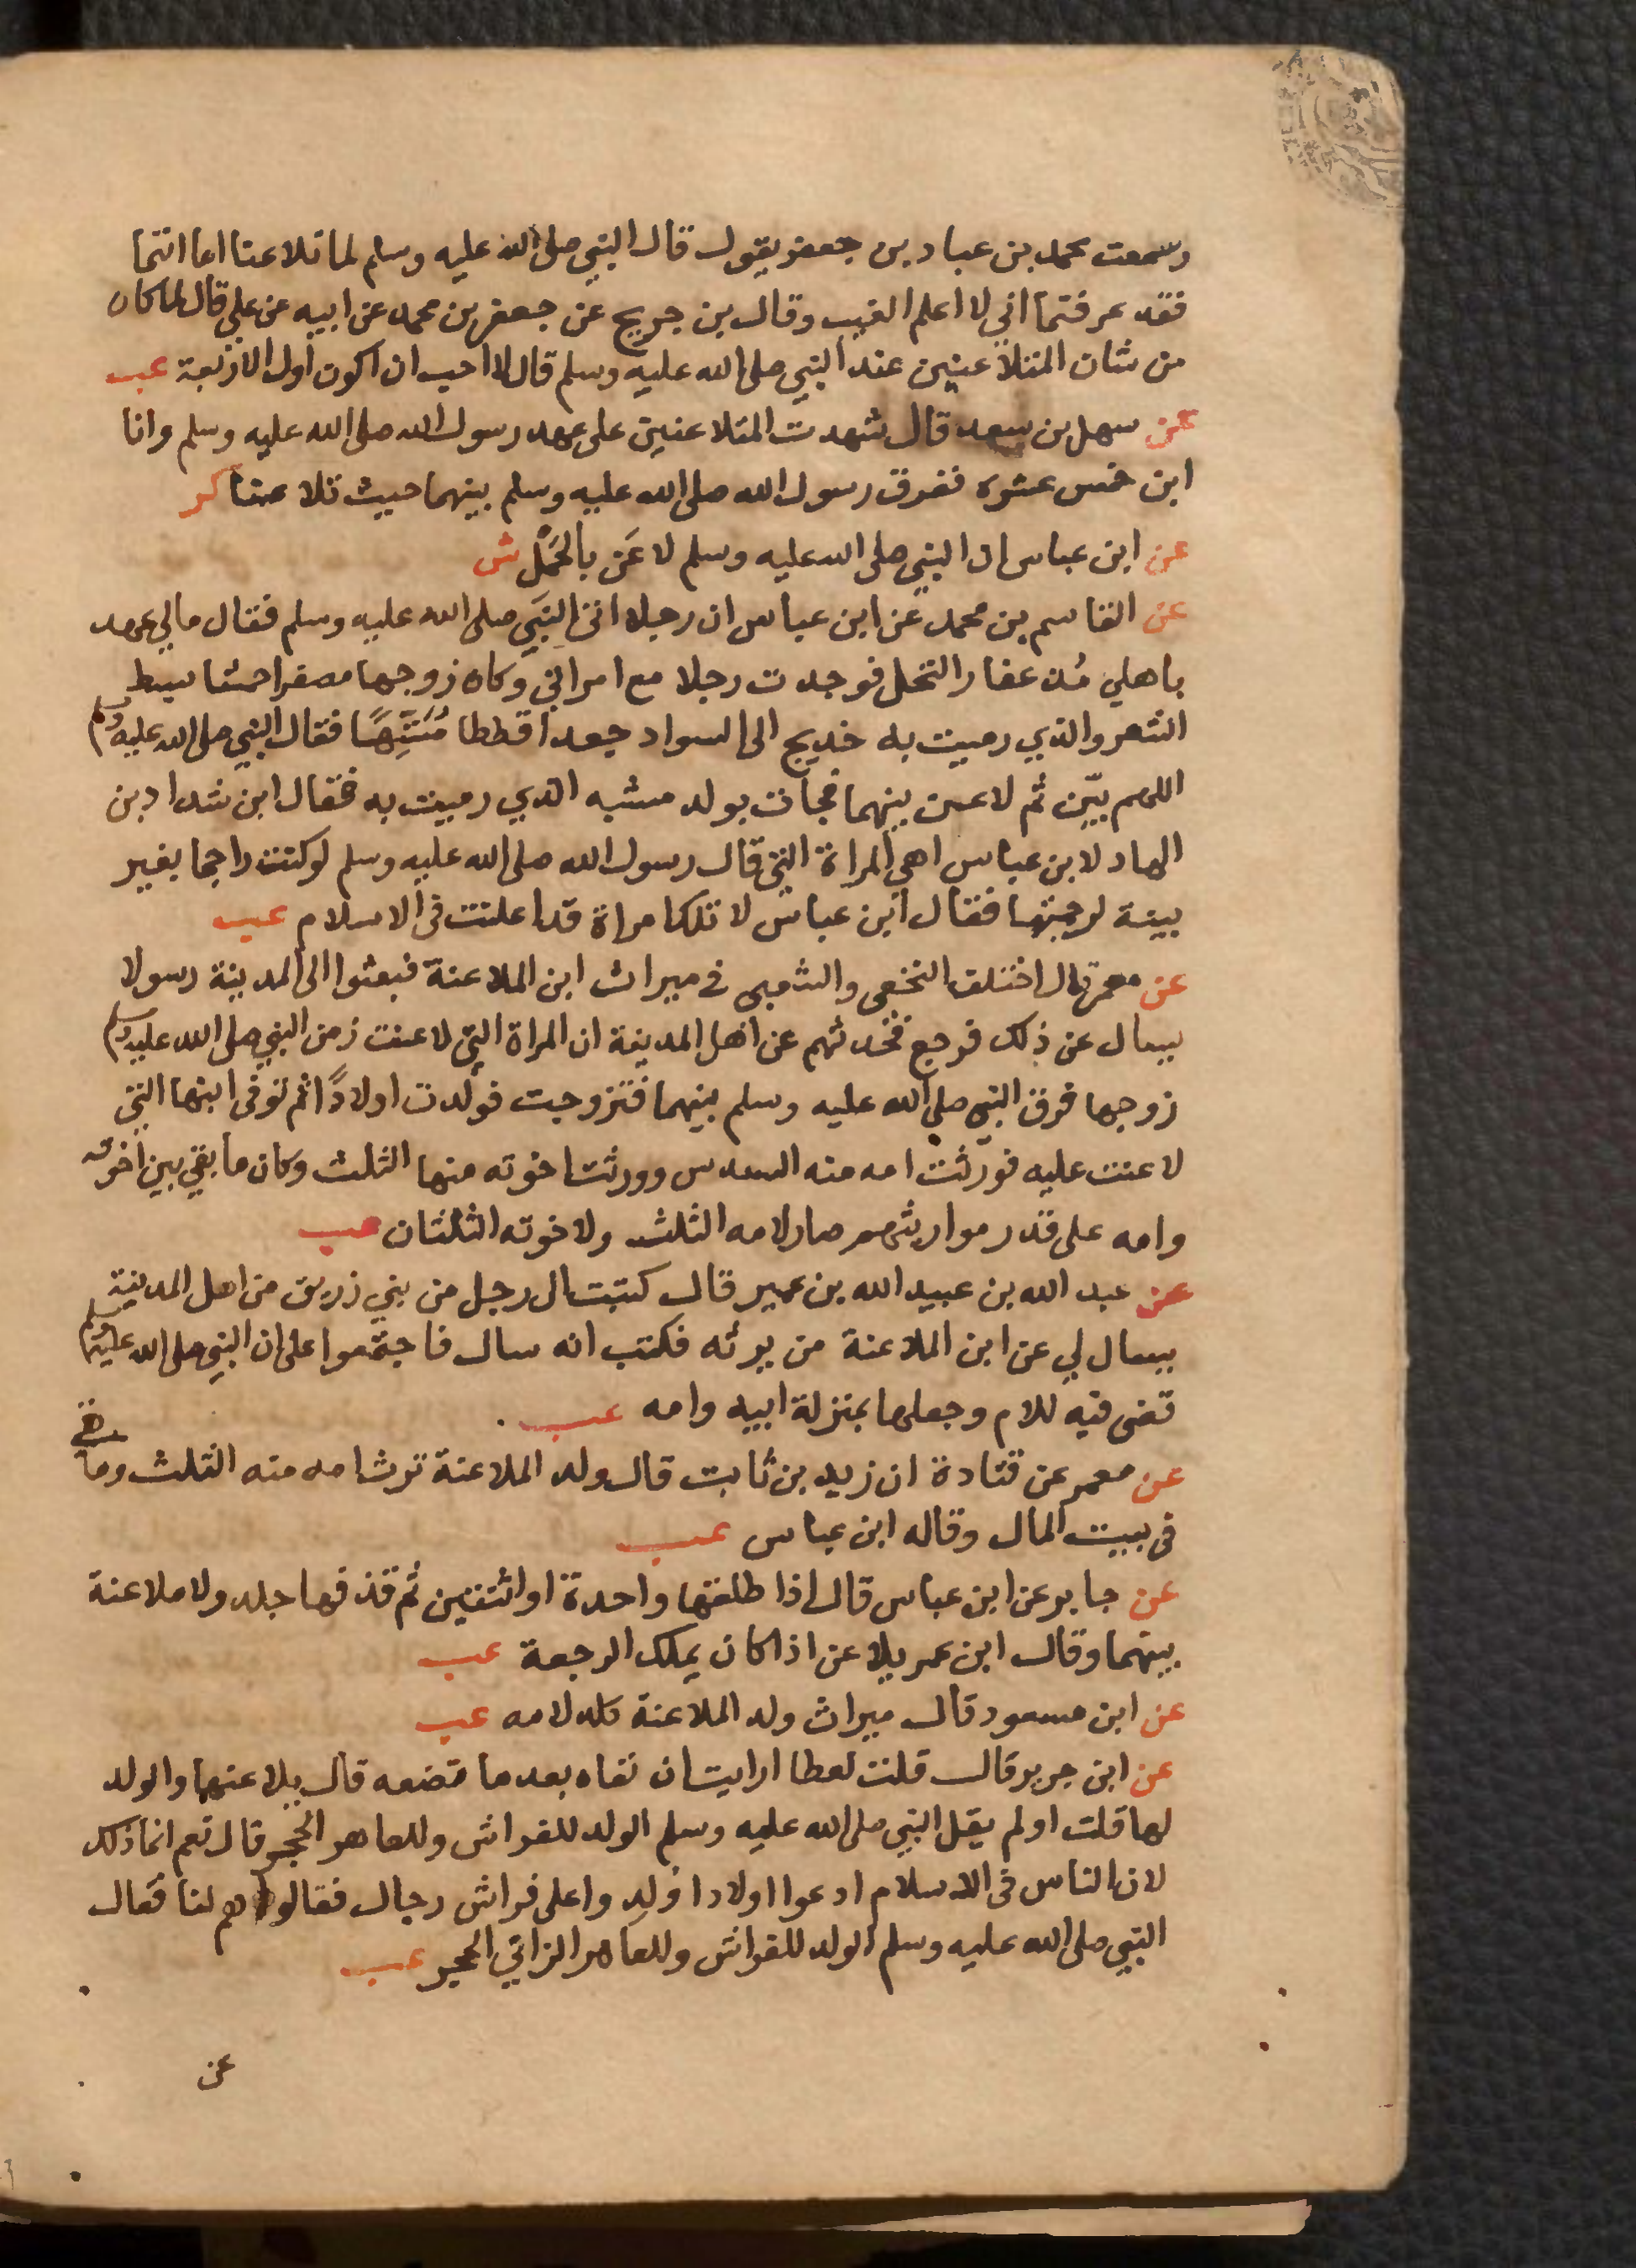 وسمعت محمد بن عباد بن جعفر يقول قال النبي صلى الله عليه وسلم لما تلاعنا اما انتما
فقد عرفتما اني لا اعلم الغيب وقال بن جريج عن جعفر بن محمد عن ابيه عن علي قال لما كان
من شان المتلاعنين عند النبي صلى الله عليه وسلم قال لا احب ان اكون اول الاربعة عب
عن سهل بن سعد قال شهدت المتلاعنين على عهد رسول الله صلى الله عليه وسلم وانا
ابن خمس عشره ففرق رسول الله صلى الله عليه وسلم بينهما حيث تلاعنا كر
عن ابن عباس ان النبي صلى الله عليه وسلم لاعَن بالحَمْل ش
عن القاسم بن محمد عن ابن عباس ان رجلا اتى النبي صلى الله عليه وسلم فقال مالي عهد
باهلي مُنذ عفار النخل فوجدت رجلا مع امراتي وكان زوجها مصفرا حمشا سبط
الشعر والذي رميت به خديج الى السواد جعدا قططا فقال النبي صلى الله عليه وسلم
اللهم بيّن ثم لاعن بينهما فجات بولد مشبه الذي رميت به فقال ابن شداد بن
الهاد لابن عباس اهي المراة التي قال رسول الله صلى الله عليه وسلم لو كنت راجما بغير
بينة لرجمتها فقال ابن عباس لا تلك امراة قد اعلنت في الاسلام عب
عن معمر قال اختلف النخعى والشعبى في ميراث ابن الملاعنة فبعثوا الى المدينة رسولا
يسال عن ذلك فرجع فحدثهم عن اهل المدينة ان المراة التي لاعنت زمن النبي صلى الله عليه وسلم
زوجها فرق النبي صلى الله عليه وسلم بينهما فتزوجت فولدت اولادًا ثم توفى ابنها التي
لاعنت عليه فورثت امه منه السدس وورثت اخوته منها الثلث وكان ما بقي بين اخوته
وامه على قدر مواريثهم صار لامه الثلث ولاخوته الثلثان عب
عن عبد الله بن عبيد الله بن عمير قال كتبت ال رجل من بني زريق من اهل المدينة
يسال لي عن ابن الملاعنة من يرثه فكتب انه سال فاجتمعوا على ان النبي صلى الله عليه وسلم
قضى فيه للام وجعلها بمنزلة ابيه وامه عب
عن معمر عن قتادة ان زيد بن ثابت قال ولد الملاعنة ترث امه منه الثلث وما بقي
في بيت المال وقاله ابن عباس عب
عن جابر عن ابن عباس قال اذا طلقها واحدة او اثنتين ثم قذفها جلد ولا ملاعنة
بينهما وقال ابن عمر يلاعن اذا كان يملك الرجعة عب
عن ابن مسعود قال ميراث ولد الملاعنة كله لامه عب
عن ابن جرير قال قلت لعطا ارايت ان نفاه بعد ما تضعه قال يلاعنها والولد
لها قلت اولم يقل النبي صلى الله عليه وسلم الولد للفراش وللعاهر الحجر قال نعم انما ذلك
لان الناس في الاسلام ادعوا اولادا ولدوا على فراش رجال فقالوا هم لنا فقال
النبي صلى الله عليه وسلم الولد للفراش وللعاهر الزاني الحجر عب
عن